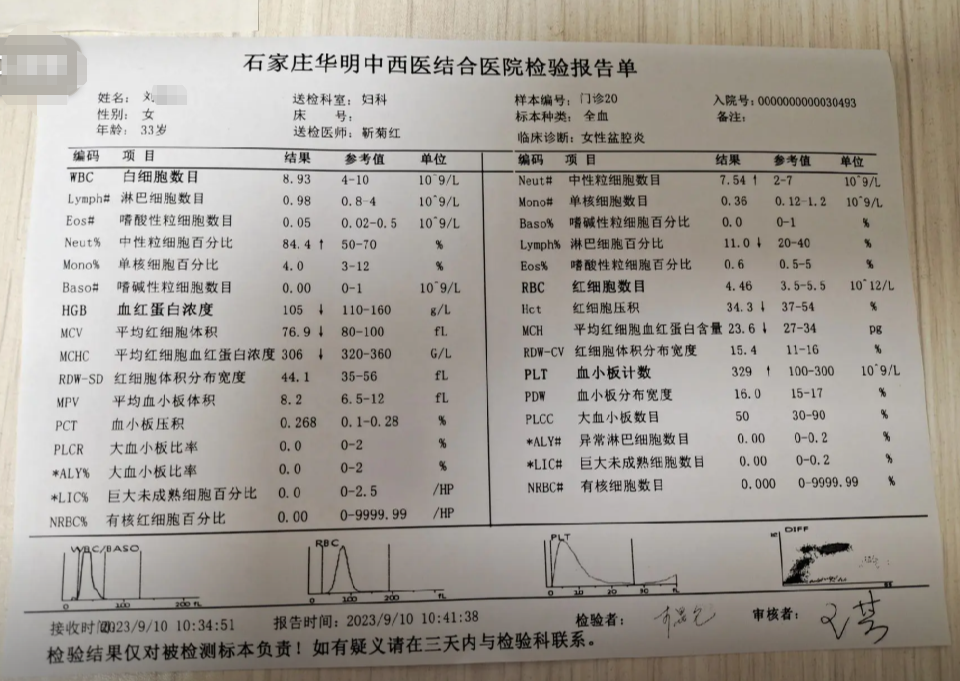 石家庄华明中西医结合医院检验报告单
姓名: 刘 送检科室: 妇科 样本编号: 门诊20 入院号:0000000000030493
性别: 女 床 号: 标本种类: 全血 备注:
年龄: 33岁 送检医师: 靳菊红 临床诊断: 女性盆腔炎
编码 项 目 结果 参考值 单位 编码 项 目 结果 参考值 单位
WBC 白细胞数目 8.93 4-10 10^9/L Neut# 中性粒细胞数目 7.54 ↑ 2-7 10^9/L
Lymph# 淋巴细胞数目 0.98 0.8-4 10^9/L Mono# 单核细胞数目 0.36 0.12-1.2 10^9/L
Eos# 嗜酸性粒细胞数目 0.05 0.02-0.5 10^9/L Baso% 嗜碱性粒细胞百分比 0.0 0-1 %
Neut% 中性粒细胞百分比 84.4 ↑ 50-70 % Lymph% 淋巴细胞百分比 11.0 ↓ 20-40 %
Mono% 单核细胞百分比 4.0 3-12 % Eos% 嗜酸性粒细胞百分比 0.6 0.5-5 %
Baso# 嗜碱性粒细胞数目 0.00 0-1 10^9/L RBC 红细胞数目 4.46 3.5-5.5 10^12/L
HGB 血红蛋白浓度 105 ↓ 110-160 g/L Hct 红细胞压积 34.3 ↓ 37-54 %
MCV 平均红细胞体积 76.9 ↓ 80-100 fL MCH 平均红细胞血红蛋白含量 23.6 ↓ 27-34 pg
MCHC 平均红细胞血红蛋白浓度 306 ↓ 320-360 G/L RDW-CV 红细胞体积分布宽度 15.4 11-16 %
RDW-SD 红细胞体积分布宽度 44.1 35-56 fL PLT 血小板计数 329 ↑ 100-300 10^9/L
MPV 平均血小板体积 8.2 6.5-12 fL PDW 血小板分布宽度 16.0 15-17 %
PCT 血小板压积 0.268 0.1-0.28 % PLCC 大血小板数目 50 30-90 %
PLCR 大血小板比率 0.0 0-2 % *ALY# 异常淋巴细胞数目 0.00 0-0.2 %
*ALY% 大血小板比率 0.0 0-2 % *LIC# 巨大未成熟细胞数目 0.00 0-0.2 %
*LIC% 巨大未成熟细胞百分比 0.0 0-2.5 /HP NRBC# 有核细胞数目 0.000 0-9999.99 %
NRBC% 有核红细胞百分比 0.00 0-9999.99 /HP
WBC/BASO RBC PLT DIFF
0 100 200 fL 0 100 200 fL 0 10 20 30 fL
接收时间:2023/9/10 10:34:51 报告时间: 2023/9/10 10:41:38 检验者: 审核者:
检验结果仅对被检测标本负责！如有疑义请在三天内与检验科联系。